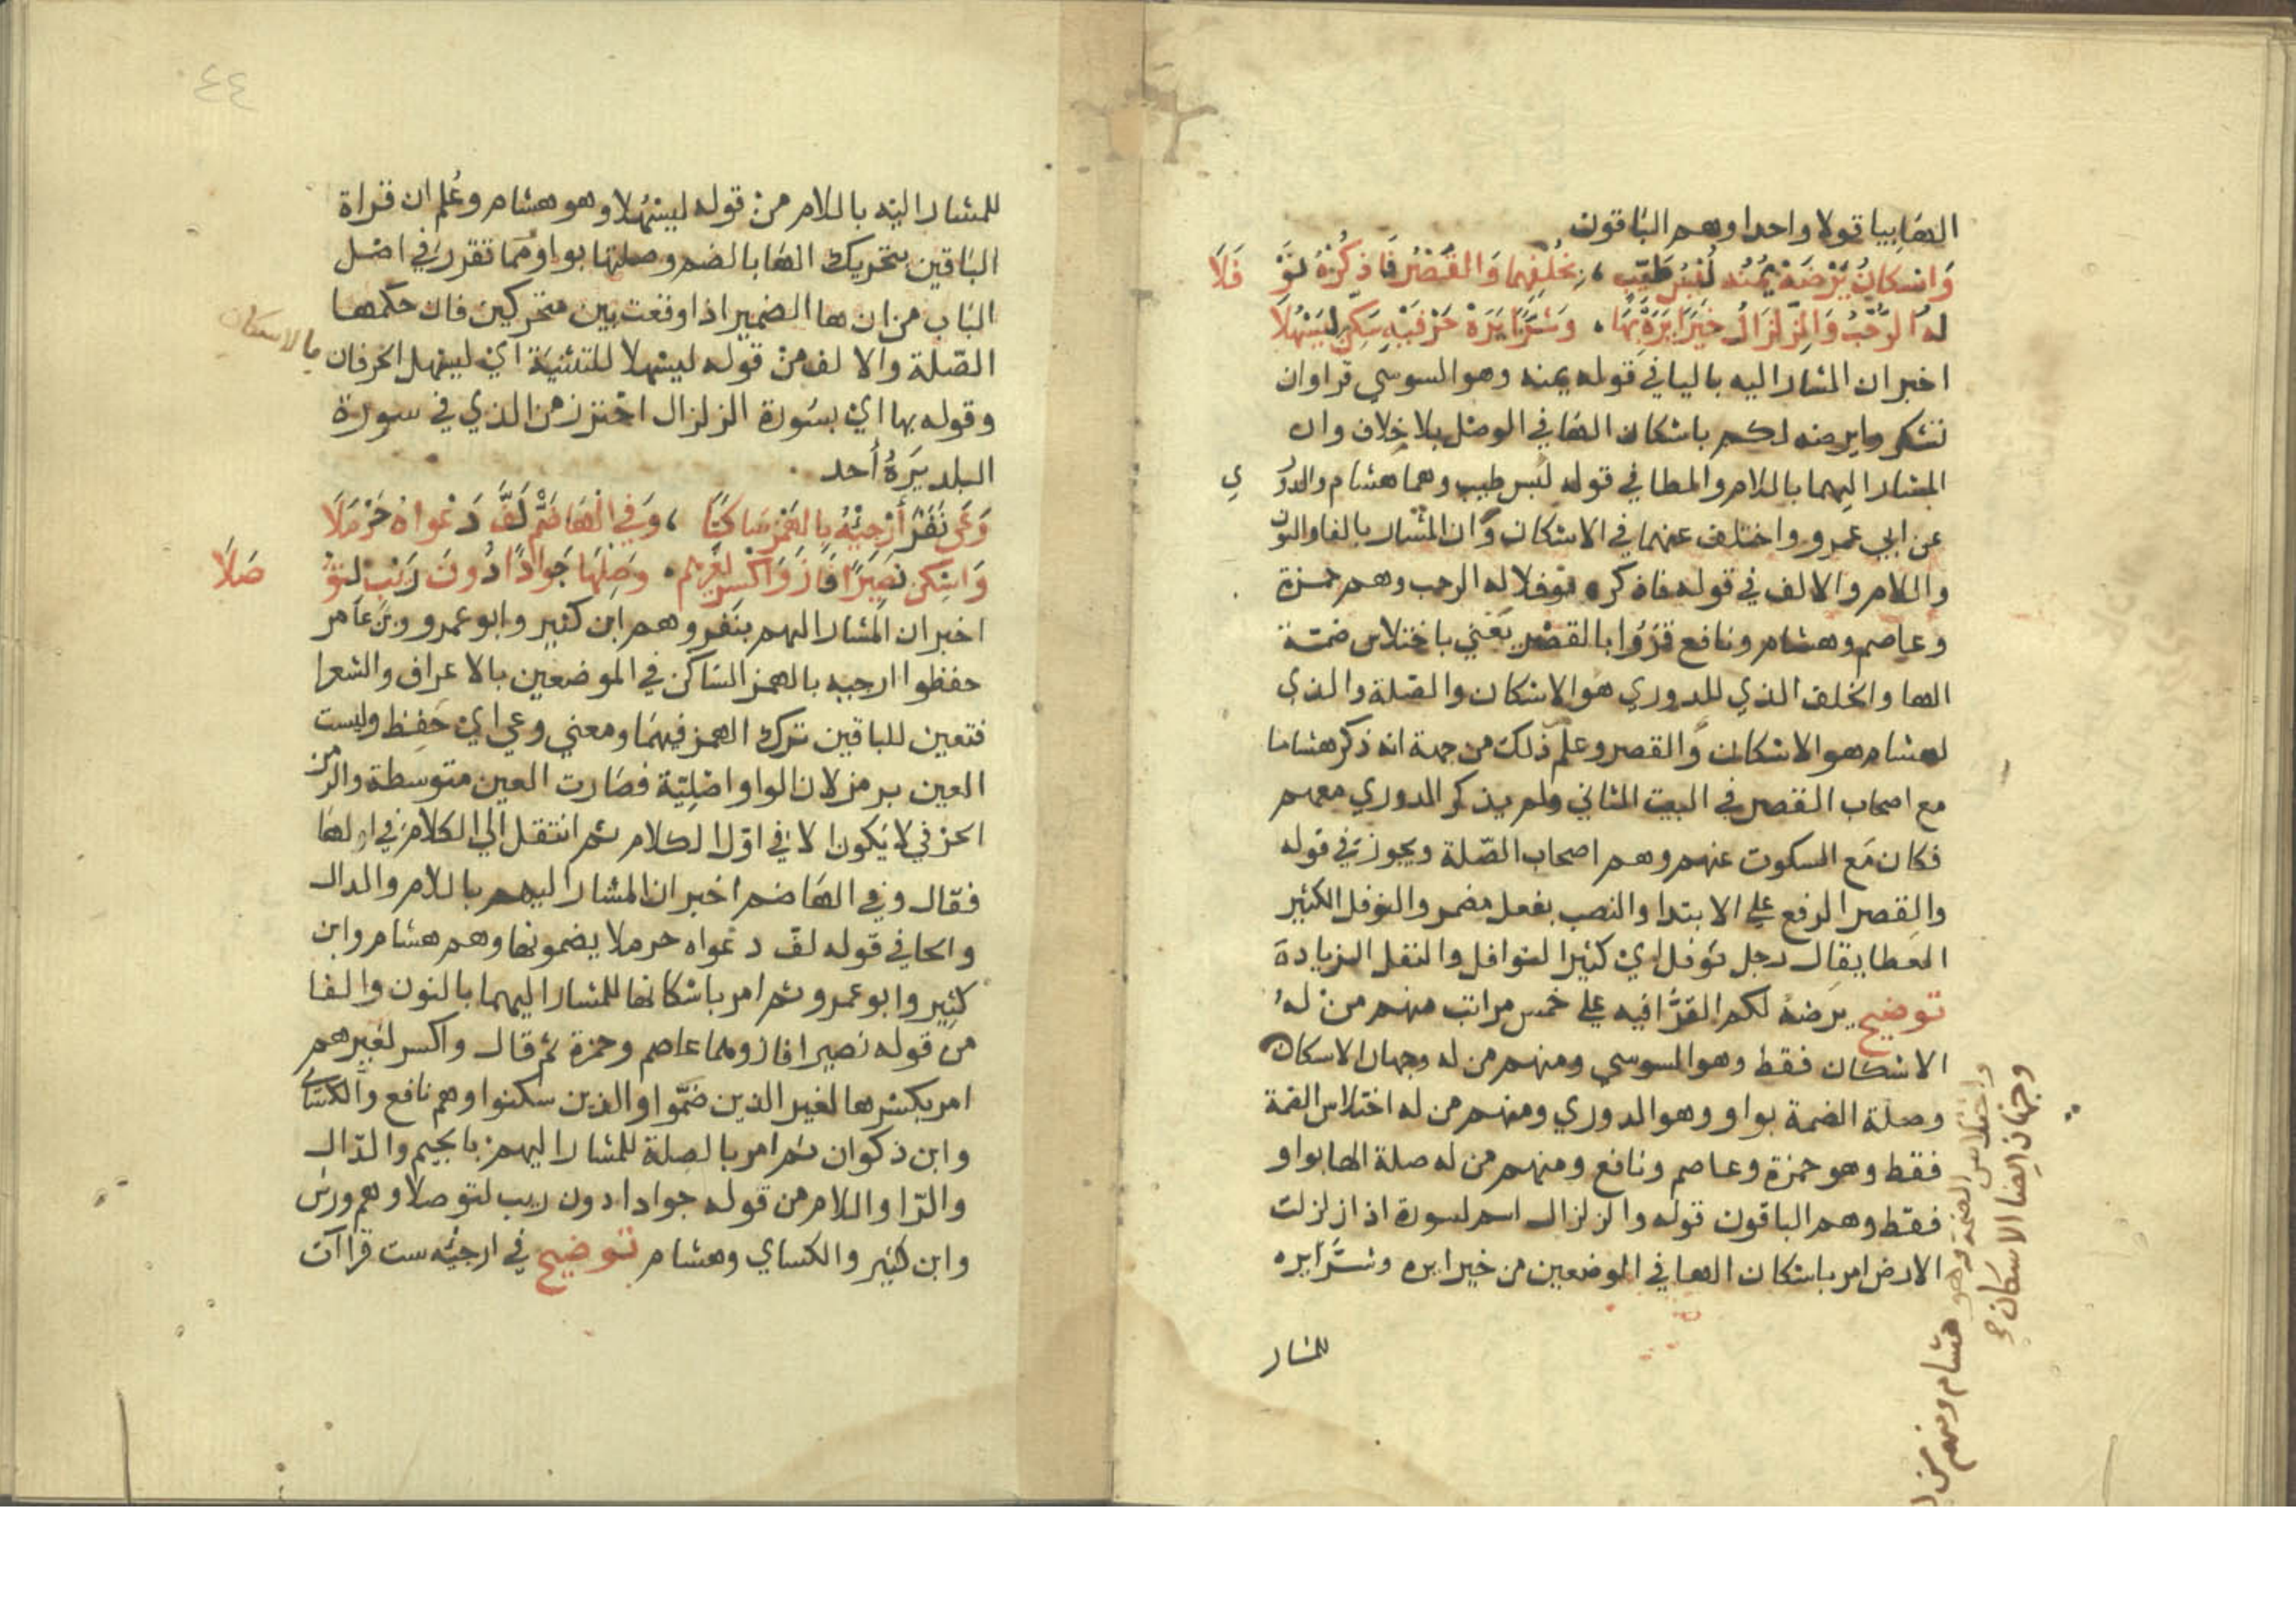 الها بيا قولا واحدا وهم الباقون
وَاِسْكانُ يَرْضَهْ يُمْنُه لُبْسُ طَيِّبٍ ، بِخُلْفِهِما وَالقَصْرُ فَاذْكُرْهُ نَوْفَلَا
لهُ الرُّحْبُ وَالزِلْزَالُ خَيْرًا يَرَهْ بِهَا ، وَشَرًّا يَرَهْ حَرْفَيْهِ سَكِّنْ لِيَسْهُلَا
اخبر ان المشار اليه باليا في قوله يمنه وهو السوسي قرا وان
تشكروا يرضه لكم باسكان الها في الوصل بلا خلاف وان
المشار اليهما باللام والطا في قوله لبس طيب وهما هشام والدوري
عن ابي عمرو واختلف عنهما في الاسكان وان المشار بالفا والنون
واللام والالف في قوله فاذكره نوفلا له الرحب وهم حمزة
وعاصم وهشام ونافع قرؤا بالقصر يعني باختلاس ضمة
الها والخلف الذي للدوري هو الاسكان والصلة والذي
لهشام هو الاسكان والقصر وعلم ذلك من جهة انه ذكر هشاما
مع اصحاب القصر في البيت الثاني ولم يذكر الدوري معهم
فكان مع السكوت عنهم وهم اصحاب الصلة ويجوز في قوله
والقصر الرفع علي الابتدا والنصب بفعل مضمر والنوفل الكثير
العطا يقال رجل نوفل اي كثير النوافل والنفل الزيادة
توضيح يرضهُ لكم القرّا فيه علي خمس مراتب منهم من لهُ
الاسكان فقط وهو السوسي ومنهم من له وجهان الاسكان
وصلة الضمة بواو وهو الدوري ومنهم من له اختلاس الضمة
فقط وهو حمزة وعاصم ونافع ومنهم من له صلة الها بواو
فقط وهم الباقون قوله والزلزال اسم لسورة اذا زلزلت
الارض امر باسكان الها في الموضعين من خيرا يره وشرّا يره
للمشار
وجهان ايضا الاسكان
واختلاس الضمة وهو هشام ومنهم من
٤٤
للمشار اليه باللام من قوله ليسهلا وهو هشام وعُلم ان قراة
الباقين بتحريك الها بالضم وصلتها بواو مما تقرر في اصل
الباب من ان ها الضمير اذا وقعت بين متحركين فان حكمها
الصّلة والالف من قوله ليسهلا للتثنية اي ليسهل الحرفان
بالاسكان
وقوله بها اي بسورة الزلزال احترز من الذي في سورة
البلد يَرَهُ أحد
وَعَى نَفَرٌ أَرْجِئْهُ بِالهَمْزِ سَاكِنًا ، وَفِي الْهَا ضَمٌّ لَفَّ دَعْواهُ حَرْمَلَا
وَاَسْكِن نَصِيرًا فَازَ وَاكْسِر لِغَيْرِهِم ، وَصِلْهَا جَوَادًا دُونَ رَيْبٍ لِتُوصَلَا
اخبر ان المشار اليهم بنفر وهم ابن كثير وابو عمرو وبن عامر
حفظوا ارجيه بالهمز الساكن في الموضعين بالاعراف والشعرا
فتعين للباقين ترك الهمز فيهما ومعني وعي اي حَفِظ وليست
العين برمز لان الواو اصليّة فصارت العين متوسطة والرمز
الحرفي لا يكون الا في اوّل الكلام ثم انتقل الي الكلام في اولها
فقال وفي الها ضم اخبر ان المشار اليهم باللام والدال
والحا في قوله لفّ دعواه حرملا يضمونها وهم هشام وابن
كثير وابو عمرو ثم امر باسكانها للمشار اليهما بالنون والفا
من قوله نصيرا فاز وهما عاصم وحمزة ثم قال واكسر لغيرهم
امر بكسرها لغير الذين ضمّوا والذين سكنوا وهم نافع والكسائي
وابن ذكوان ثم امر بالصلة للمشار اليهم بالجيم والدّال
والرّا واللام من قوله جوادا دون ريب لتوصلا وهم ورش
وابن كثير والكساي وهشام توضيح في ارجئه ست قراآت